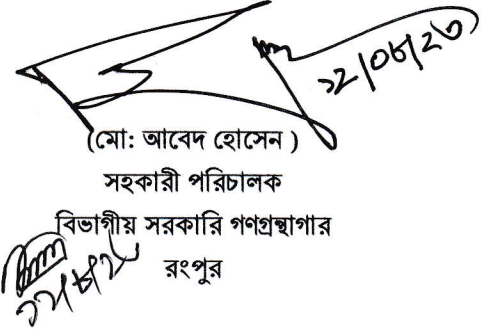 ১২/০৮/২৩
(মো: আবেদ হোসেন )
সহকারী পরিচালক
বিভাগীয় সরকারি গণগ্রন্থাগার
রংপুর